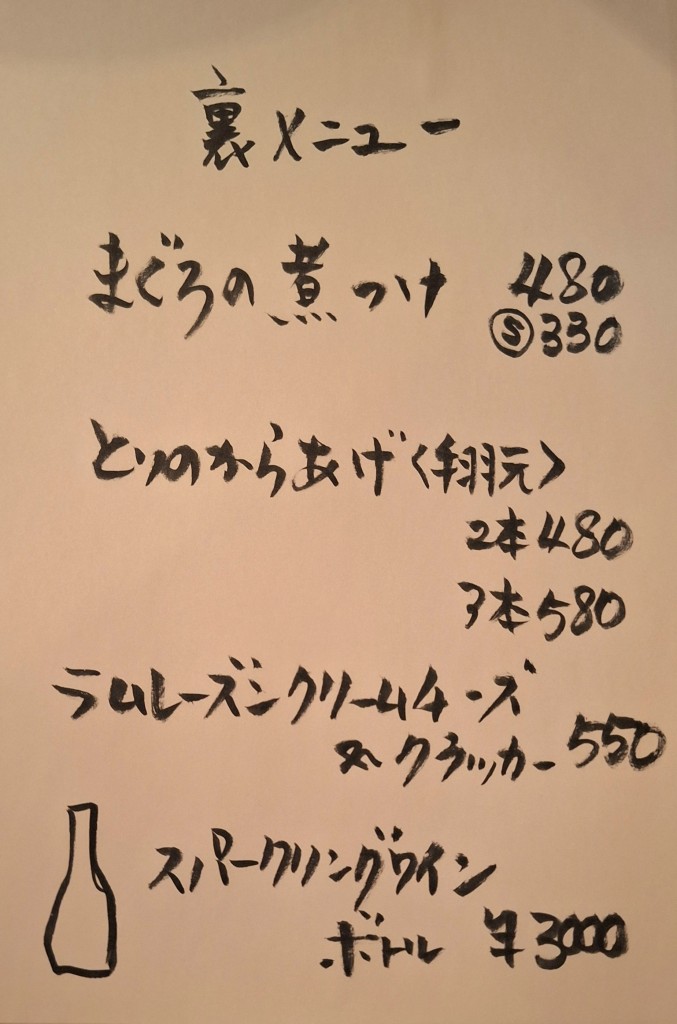 裏メニュー
まぐろの煮つけ 480
Ⓢ330
とりのからあげ〈手羽元〉
2本480
3本580
ラムレーズンクリームチーズ
クラッカー 550
スパークリングワイン
ボトル ¥3000